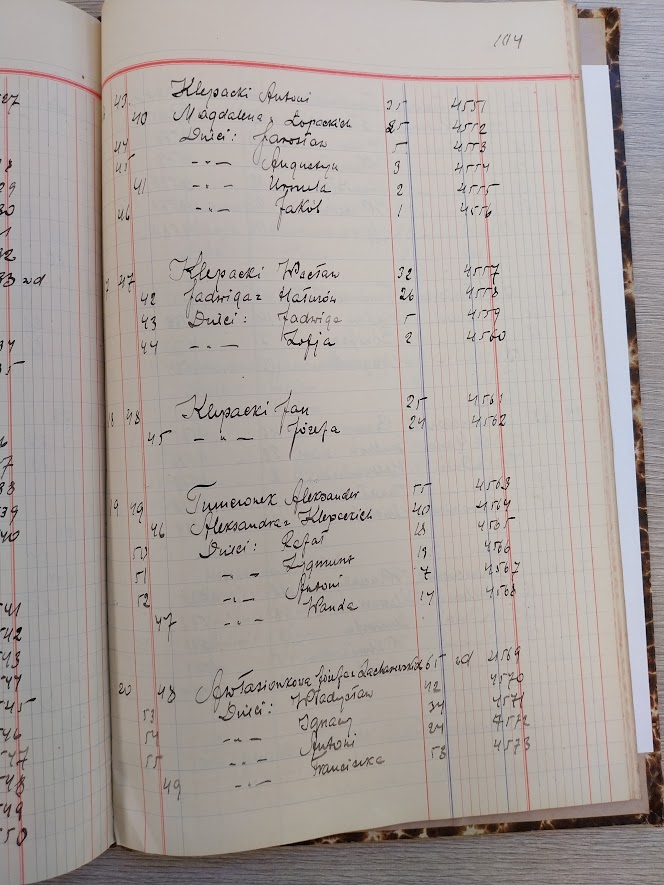 104
43 Klepacki Antoni 35 4551
40 Magdalena z Łopackich 25 4552
44 Dzieci: Jarosław 5 4553
45 -"- Augustyn 3 4554
41 -"- Urszula 2 4555
46 -"- Jakób 1 4556
47 Klepacki Wacław 32 4557
42 Jadwiga z 26 4558
43 Dzieci: Jadwiga 5 4559
44 -"- Zofja 2 4560
18 48 Klepacki Jan 25 4561
45 -"- Józefa 24 4562
19 49 Aleksander 55 4563
46 Aleksandra z Klepackich 40 4564
50 Dzieci: Rafał 18 4565
51 -"- Zygmunt 13 4566
52 -"- Antoni 7 4567
47 -"- Wanda 14 4568
20 48 Józefa z 65 wd 4569
53 Dzieci: Władysław 42 4570
54 -"- Ignacy 34 4571
55 -"- Antoni 24 4572
49 -"- Franciszka 58 4573
27
29
30
32
33 wd
34
35
37
38
39
40
541
542
543
545
546
547
548
549
550